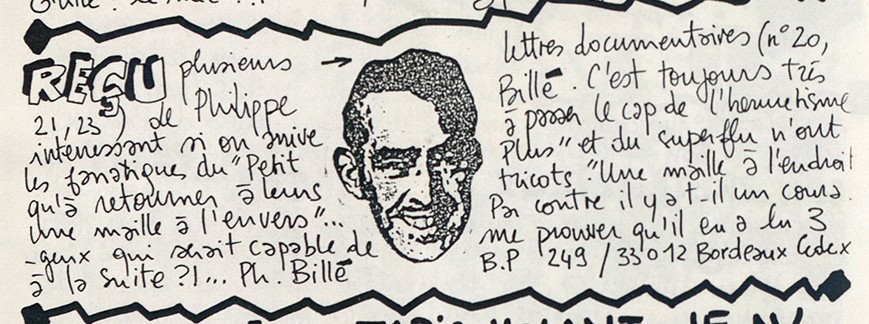 REÇU plusieurs → lettres documentaires (n°20,
21, 23) de Philippe Billé. C'est toujours très
intéressant si on arrive à passer le cap de l'hermétisme
les fanatiques du "Petit Plus" et du superflu n'ont
qu'à retourner à leurs tricots "Une maille à l'endroit
une maille à l'envers"... Par contre il y at-il un coura
-geux qui serait capable de me prouver qu'il en a lu 3
à la suite ?!... Ph. Billé B.P 249 / 33012 Bordeaux Cedex